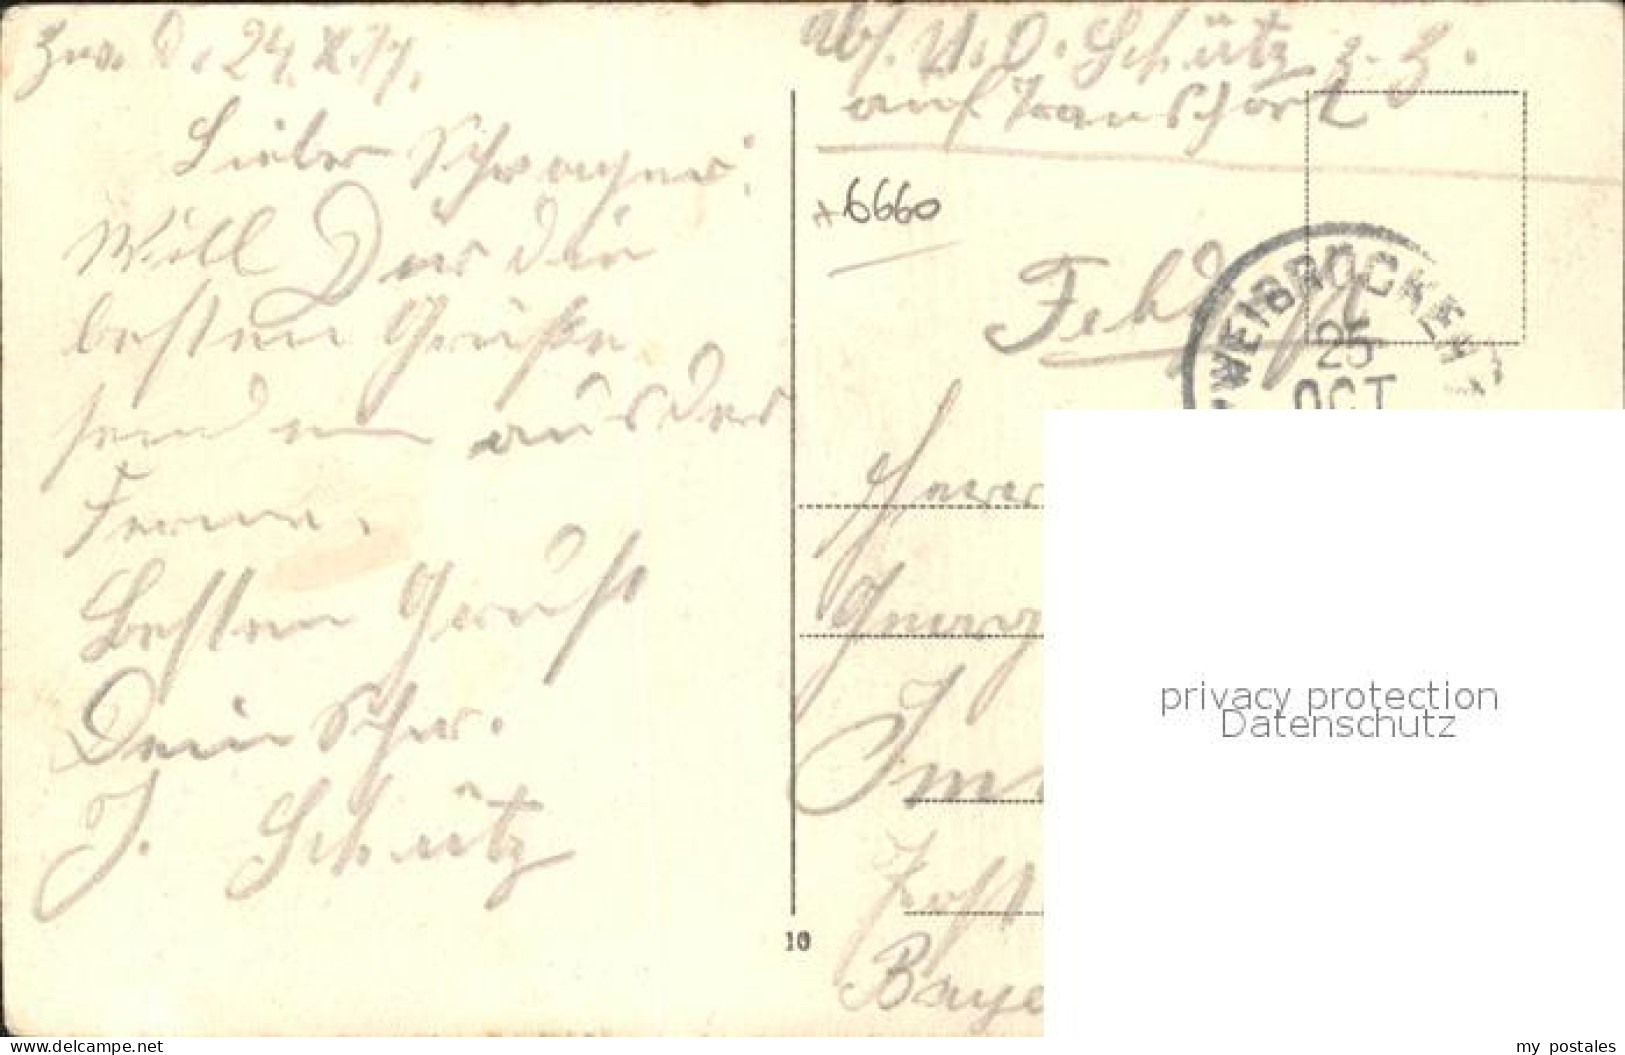 24. X. 17.
Lieber Schwager!
Will Dir die
besten Grüße
senden aus der
Ferne.
Besten Gruß
Dein Schw.
J. Schütz
Abs. U. O. Schütz z. Z.
auf Transport
6660
Feldp
ZWEIBRÜCKEN
25
OCT
Herrn
Georg
Post
Baye
10
privacy protection
Datenschutz
www.delcampe.net
my_postales